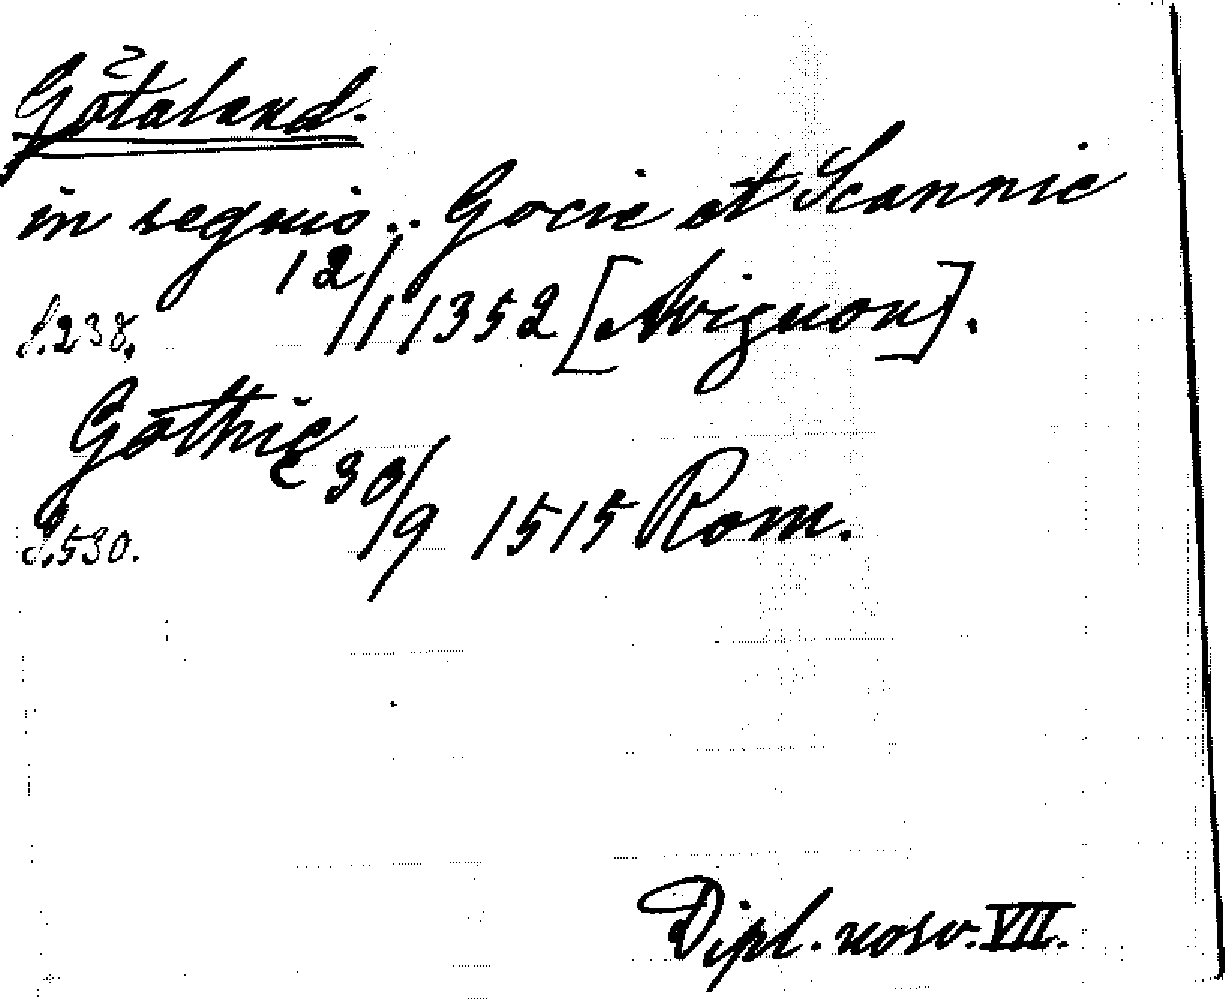 Götaland.
in regnis .. Gocie et Scannie
12/1 1352 [Avignon].
s. 238.
Gothie 30/9 1515 Rom.
s. 530.
Dipl. norv. VII.